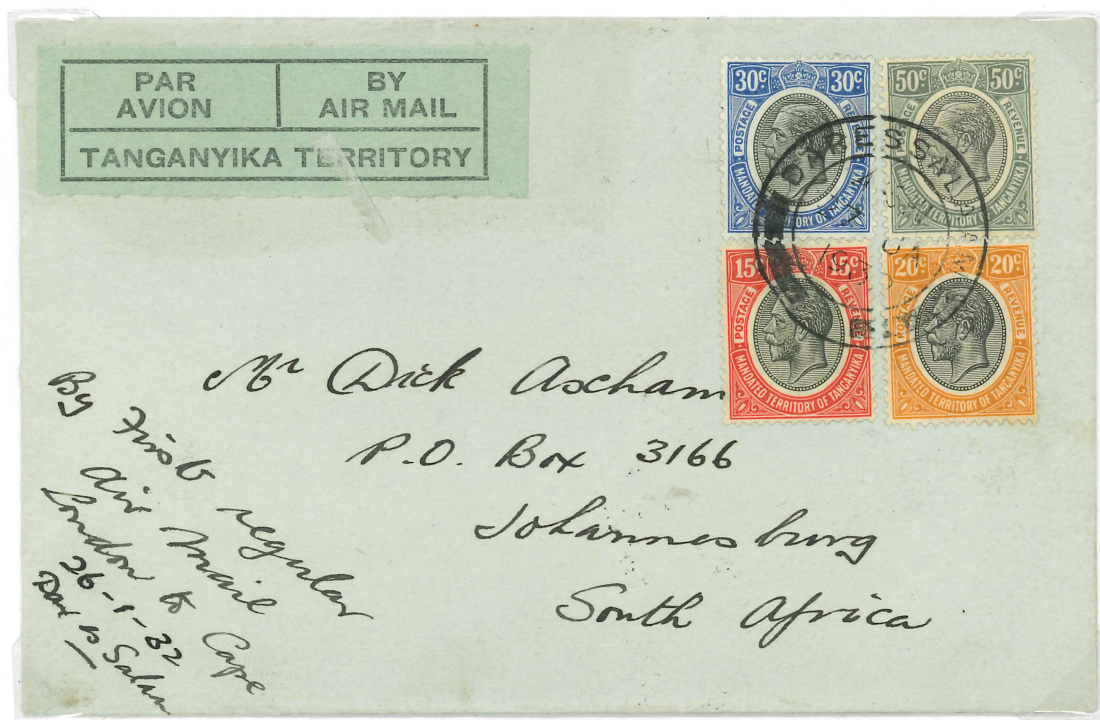 PAR AVION
BY AIR MAIL
TANGANYIKA TERRITORY
30c 30c
POSTAGE REVENUE
MANDATED TERRITORY OF TANGANYIKA
50c 50c
POSTAGE REVENUE
MANDATED TERRITORY OF TANGANYIKA
15c 15c
POSTAGE REVENUE
MANDATED TERRITORY OF TANGANYIKA
20c 20c
POSTAGE REVENUE
MANDATED TERRITORY OF TANGANYIKA
DAR-ES-SALA
Mr Dick Ascham
P.O. Box 3166
Johannesburg
South Africa
By First regular
air mail
London to Cape
26-1-32
Dar es Salam